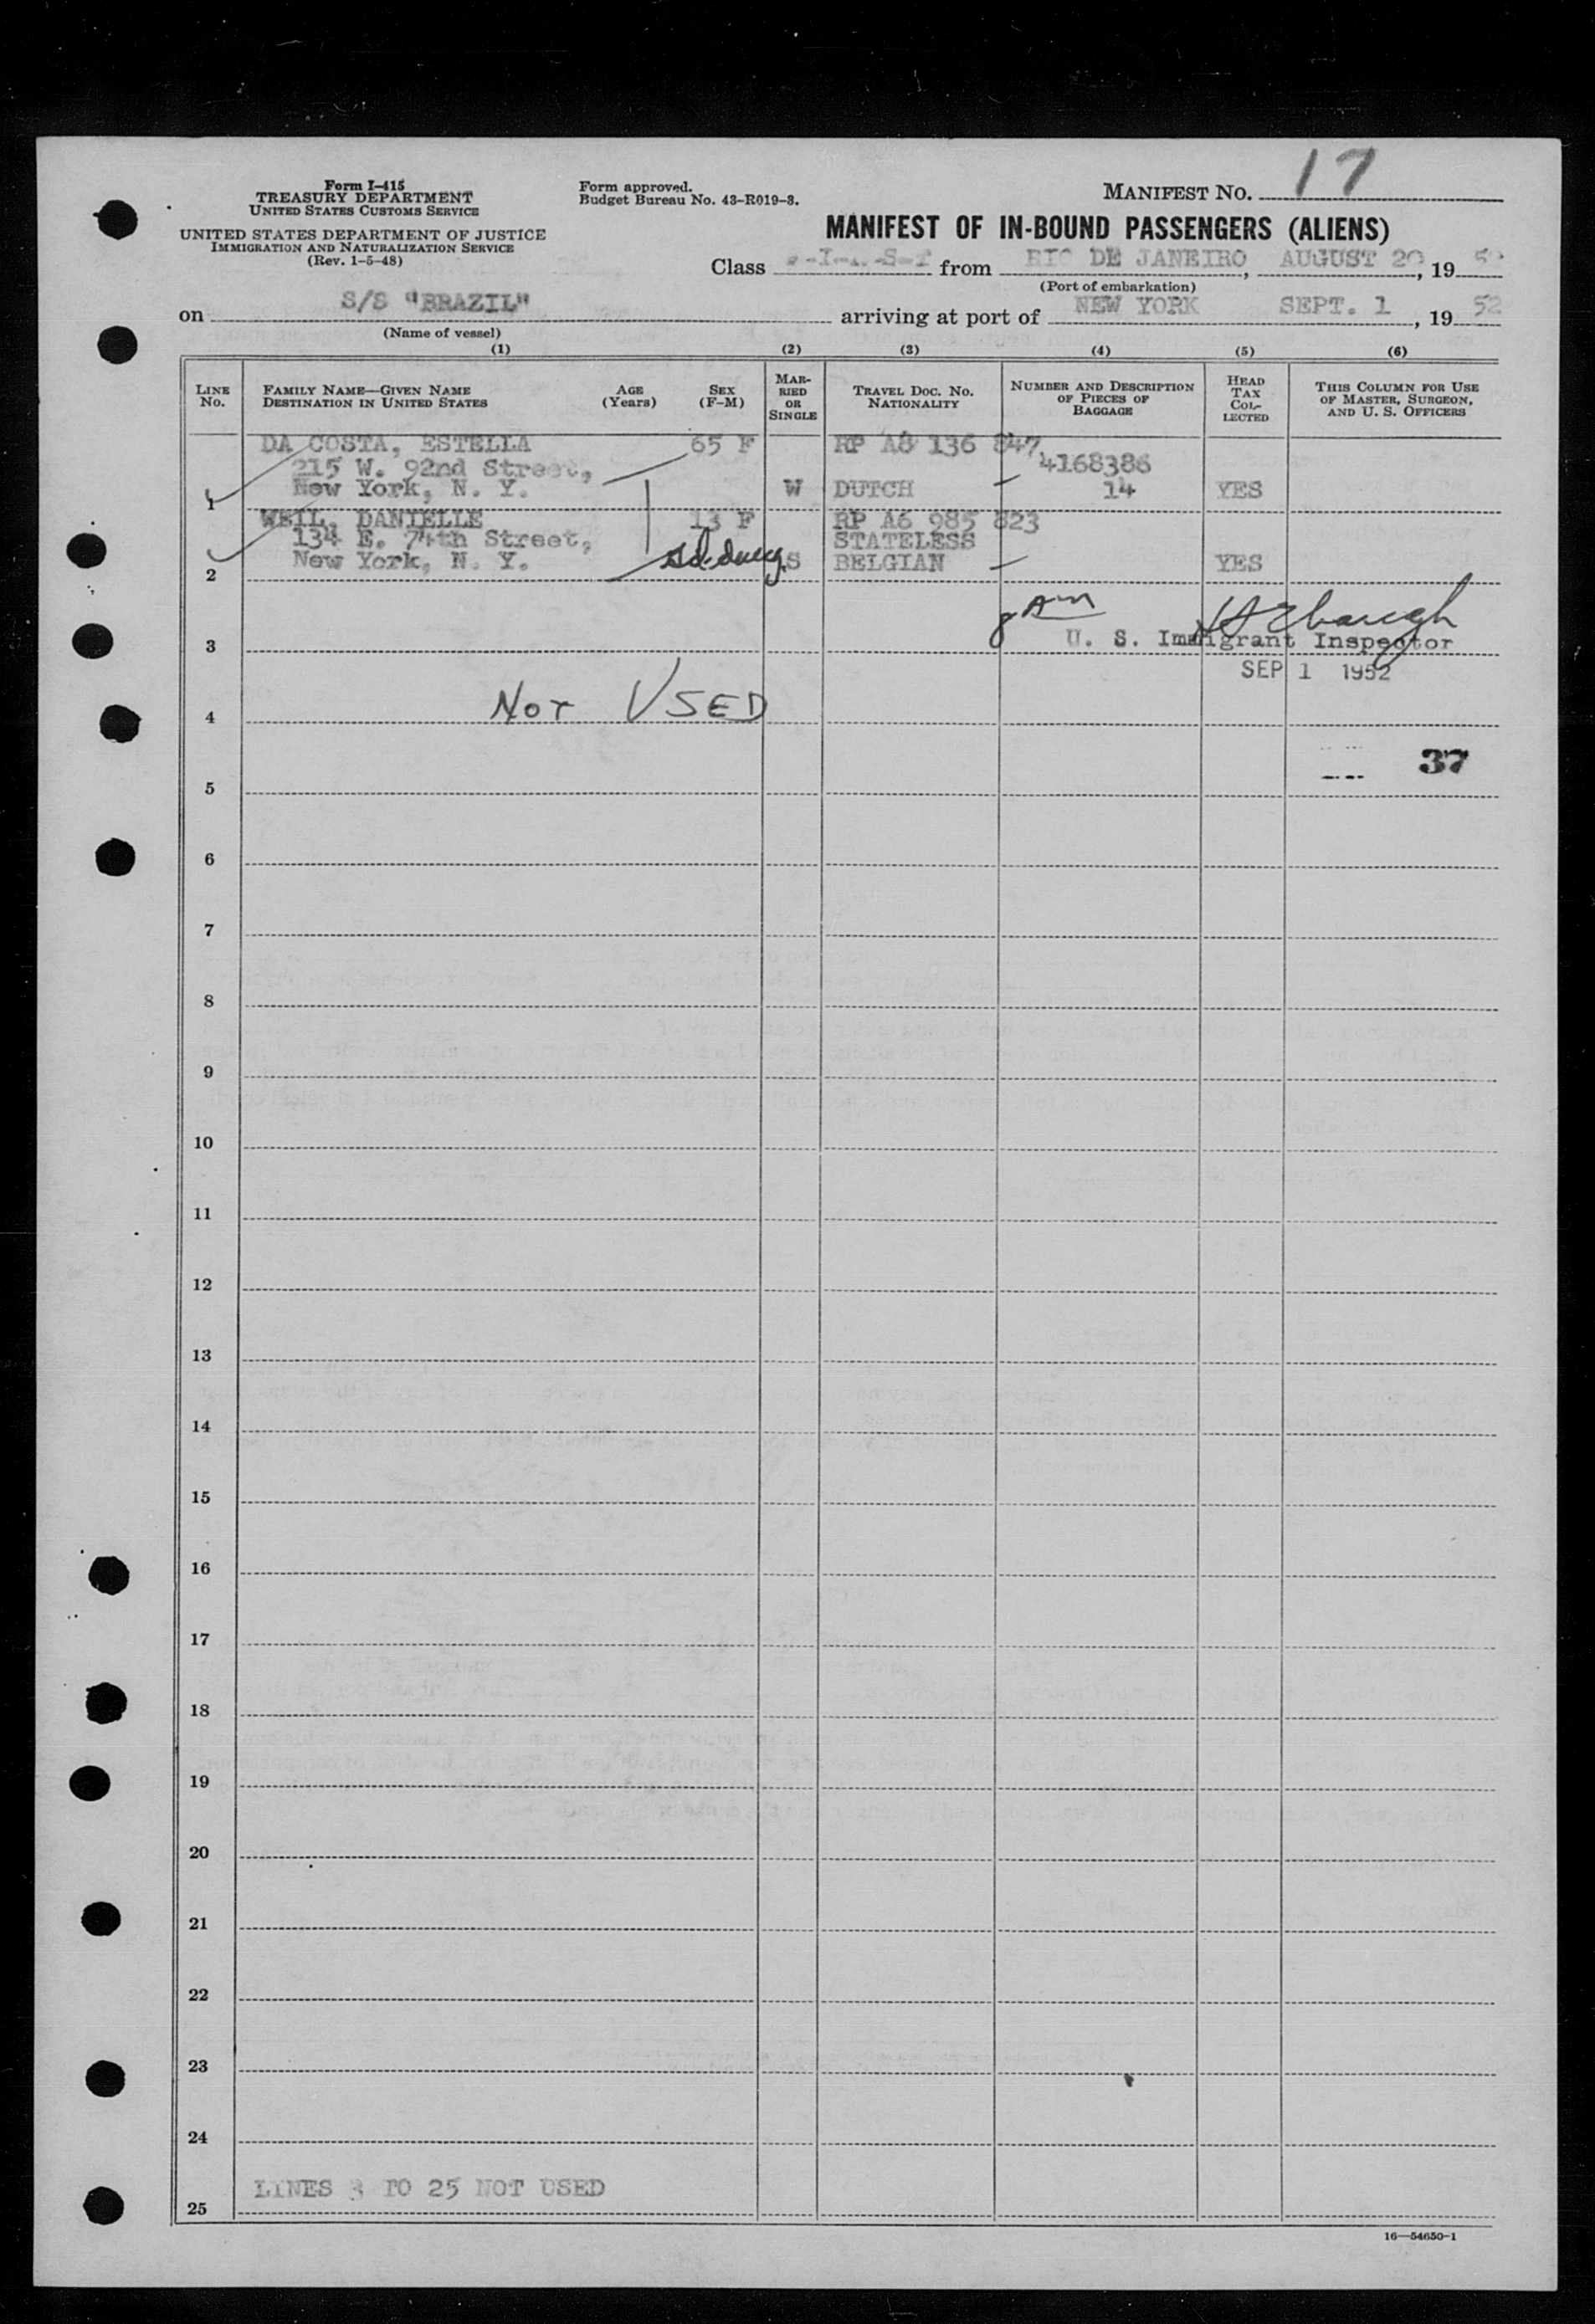 Form I-415
TREASURY DEPARTMENT
UNITED STATES CUSTOMS SERVICE
UNITED STATES DEPARTMENT OF JUSTICE
IMMIGRATION AND NATURALIZATION SERVICE
(Rev. 1-5-48)
Form approved.
Budget Bureau No. 43-R019-3.
MANIFEST NO. 17
MANIFEST OF IN-BOUND PASSENGERS (ALIENS)
Class from RIO DE JANEIRO, AUGUST 20, 19 52
(Port of embarkation)
on S/S "BRAZIL" arriving at port of NEW YORK SEPT. 1, 19 52
(Name of vessel)
(1) (2) (3) (4) (5) (6)
LINE NO.
FAMILY NAME—GIVEN NAME
DESTINATION IN UNITED STATES
AGE (Years)
SEX (F-M)
MARRIED OR SINGLE
TRAVEL DOC. NO. NATIONALITY
NUMBER AND DESCRIPTION OF PIECES OF BAGGAGE
HEAD TAX COLLECTED
THIS COLUMN FOR USE OF MASTER, SURGEON, AND U. S. OFFICERS
DA COSTA, ESTELLA 65 F RP A8 136 847
215 W. 92nd Street, 4168386
1 New York, N. Y. W DUTCH — 14 YES
WEIL, DANIELLE 13 F RP A6 985 823
134 E. 74th Street, STATELESS
2 New York, N. Y. S BELGIAN — YES
3 U. S. Immigrant Inspector
SEP 1 1952
4 NOT USED
37
5
6
7
8
9
10
11
12
13
14
15
16
17
18
19
20
21
22
23
24
LINES 3 TO 25 NOT USED
25
16—54650-1